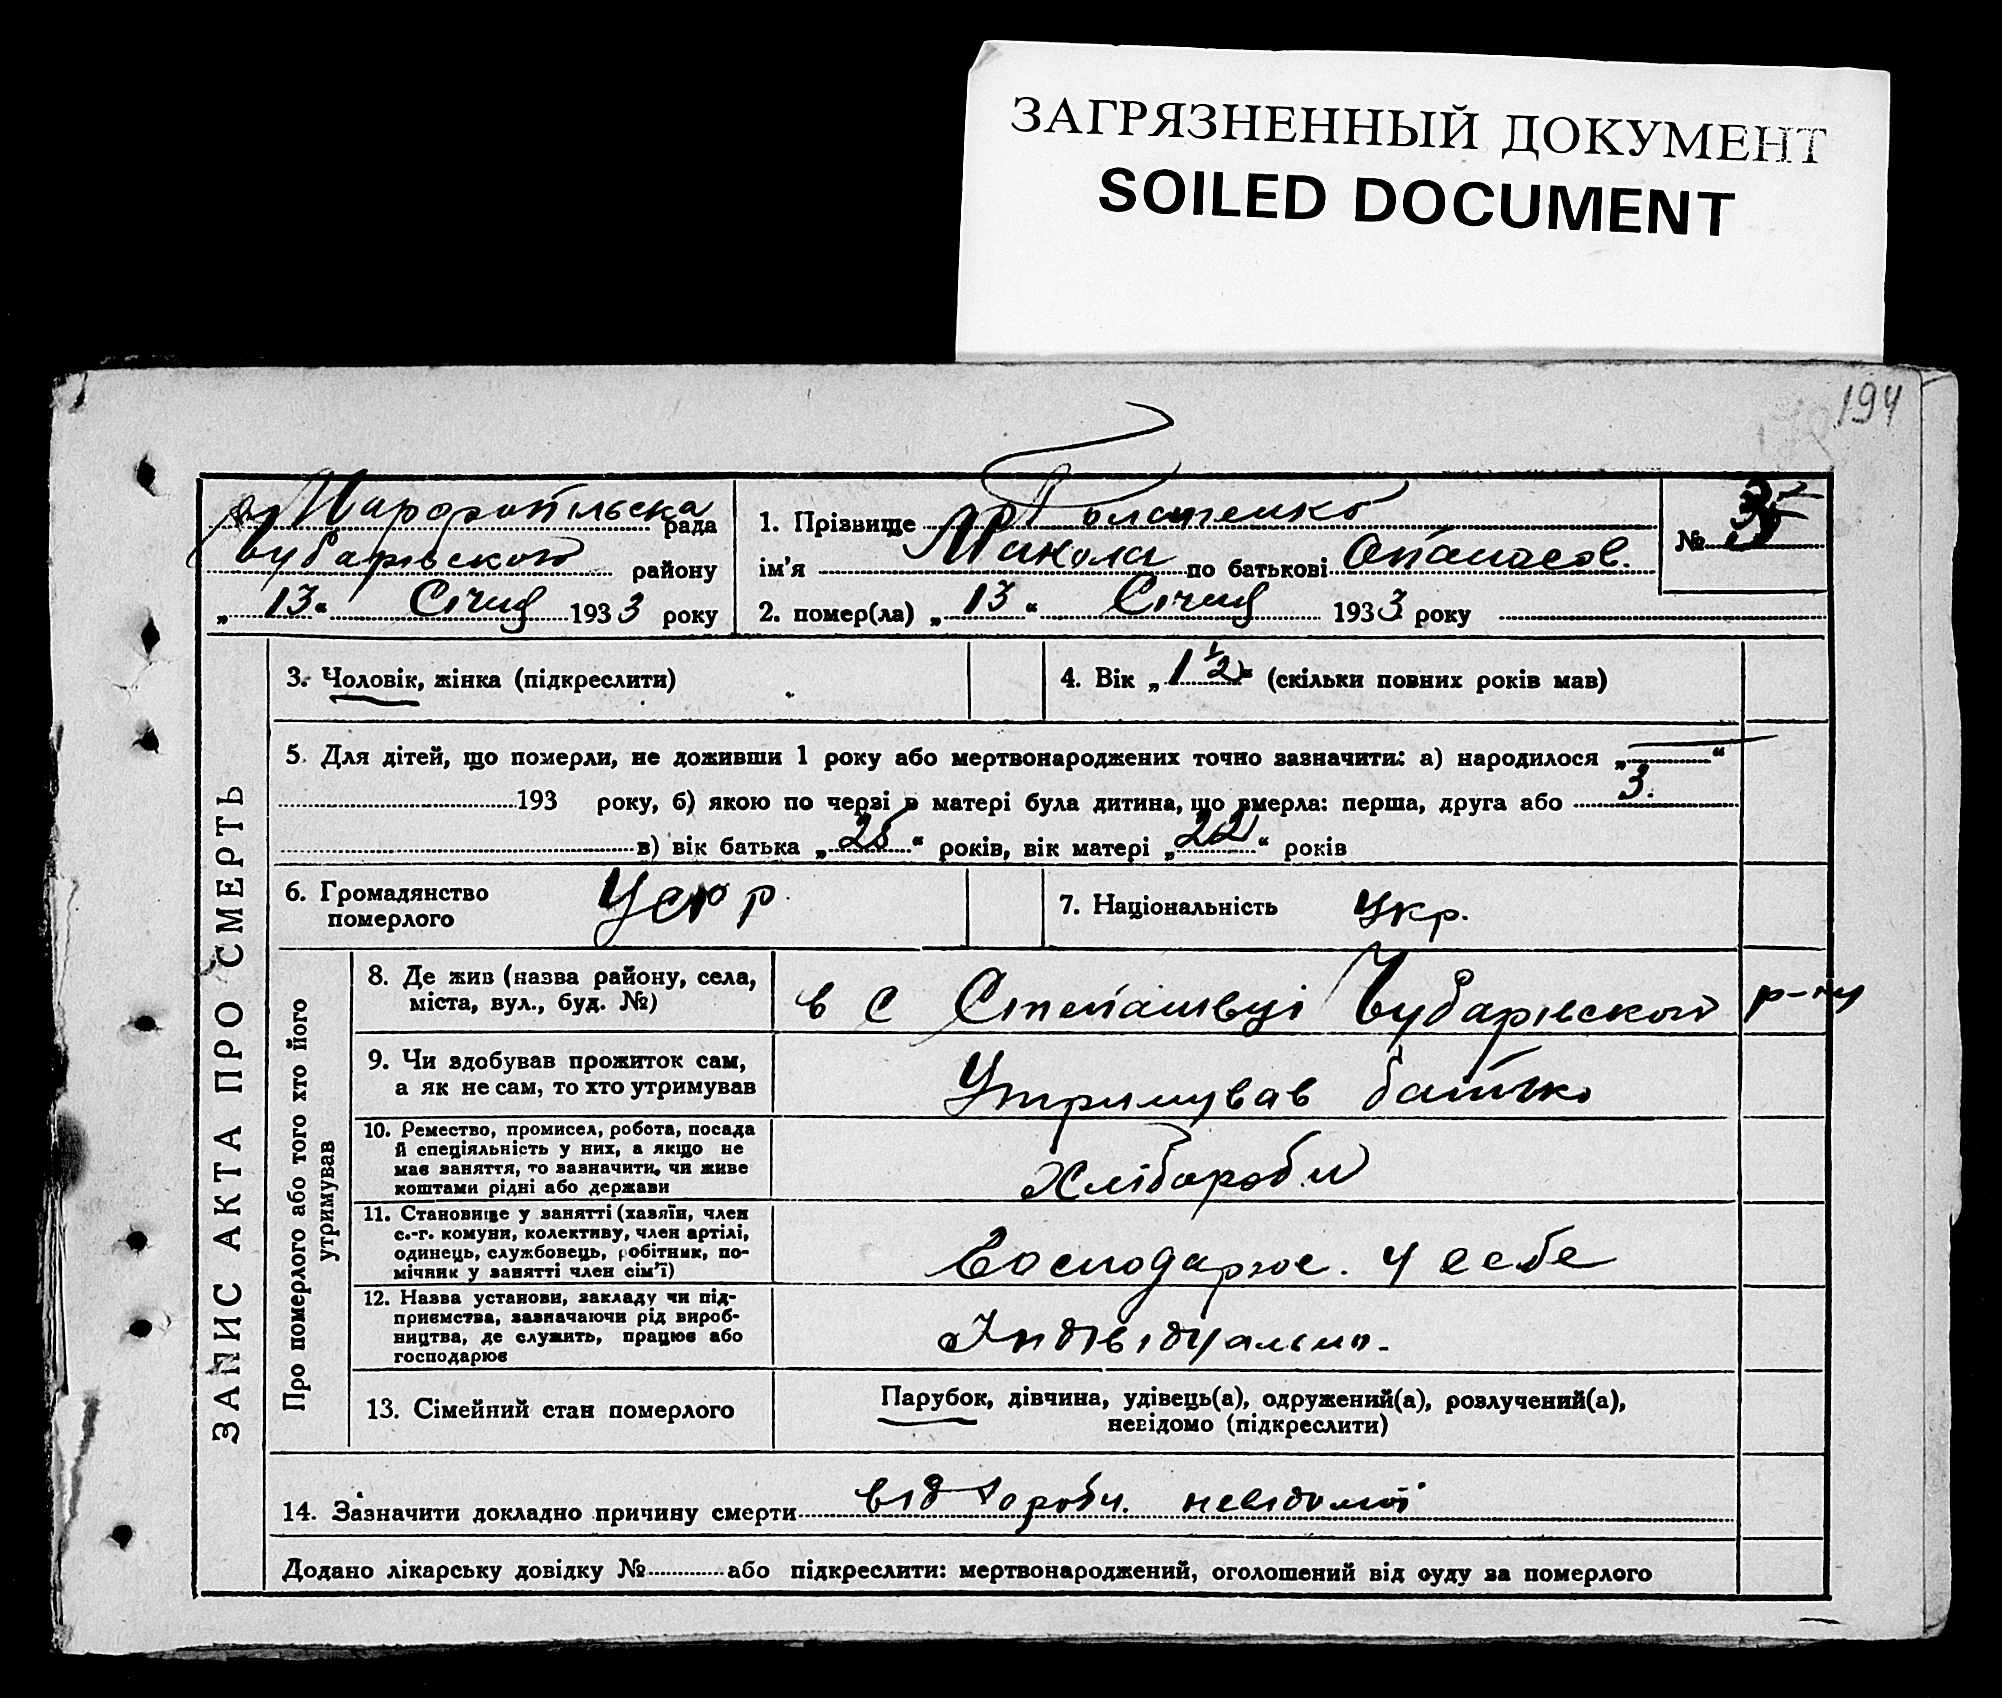 ЗАГРЯЗНЕННЫЙ ДОКУМЕНТ
SOILED DOCUMENT
194
рада
1. Прізвище
№
Чубарівского району
ім'я Микола по батькові Опанасов.
„ 13 “ Січня 1933 року
2. помер(ла) „ 13 “ Січня 1933 року
ЗАПИС АКТА ПРО СМЕРТЬ
3. Чоловік, жінка (підкреслити)
4. Вік „ 1 1/2 “ (скільки повних років мав)
5. Для дітей, що померли, не доживши 1 року або мертвонароджених точно зазначити: а) народилося „ — “
193 року, б) якою по черзі в матері була дитина, що вмерла: перша, друга або 3.
в) вік батька „ 25 “ років, вік матері „ 22 “ років
6. Громадянство
померлого
Усрр
7. Національність Укр.
Про померлого або того хто його
утримував
8. Де жив (назва району, села,
міста, вул., буд. №)
в с Степанівці Чубарівского р-ну
9. Чи здобував прожиток сам,
а як не сам, то хто утримував
Утримував батько
10. Ремество, промисел, робота, посада
й спеціяльність у них, а якщо не
має заняття, то зазначити, чи живе
коштами рідні або держави
Хлібороби
11. Становище у занятті (хазяїн, член
с.-г. комуни, колективу, член артілі,
одинець, службовець, робітник, по-
мічник у занятті член сім'ї)
Господарює. у себе
12. Назва установи, закладу чи під-
приємства, зазначаючи рід вироб-
ництва, де служить, працює або
господарює
Індівідуально.
13. Сімейний стан померлого
Парубок, дівчина, удівець(а), одружений(а), розлучений(а),
невідомо (підкреслити)
14. Зазначити докладно причину смерти від хороби. невідомої
Додано лікарську довідку № або підкреслити: мертвонароджений, оголошений від суду за померлого